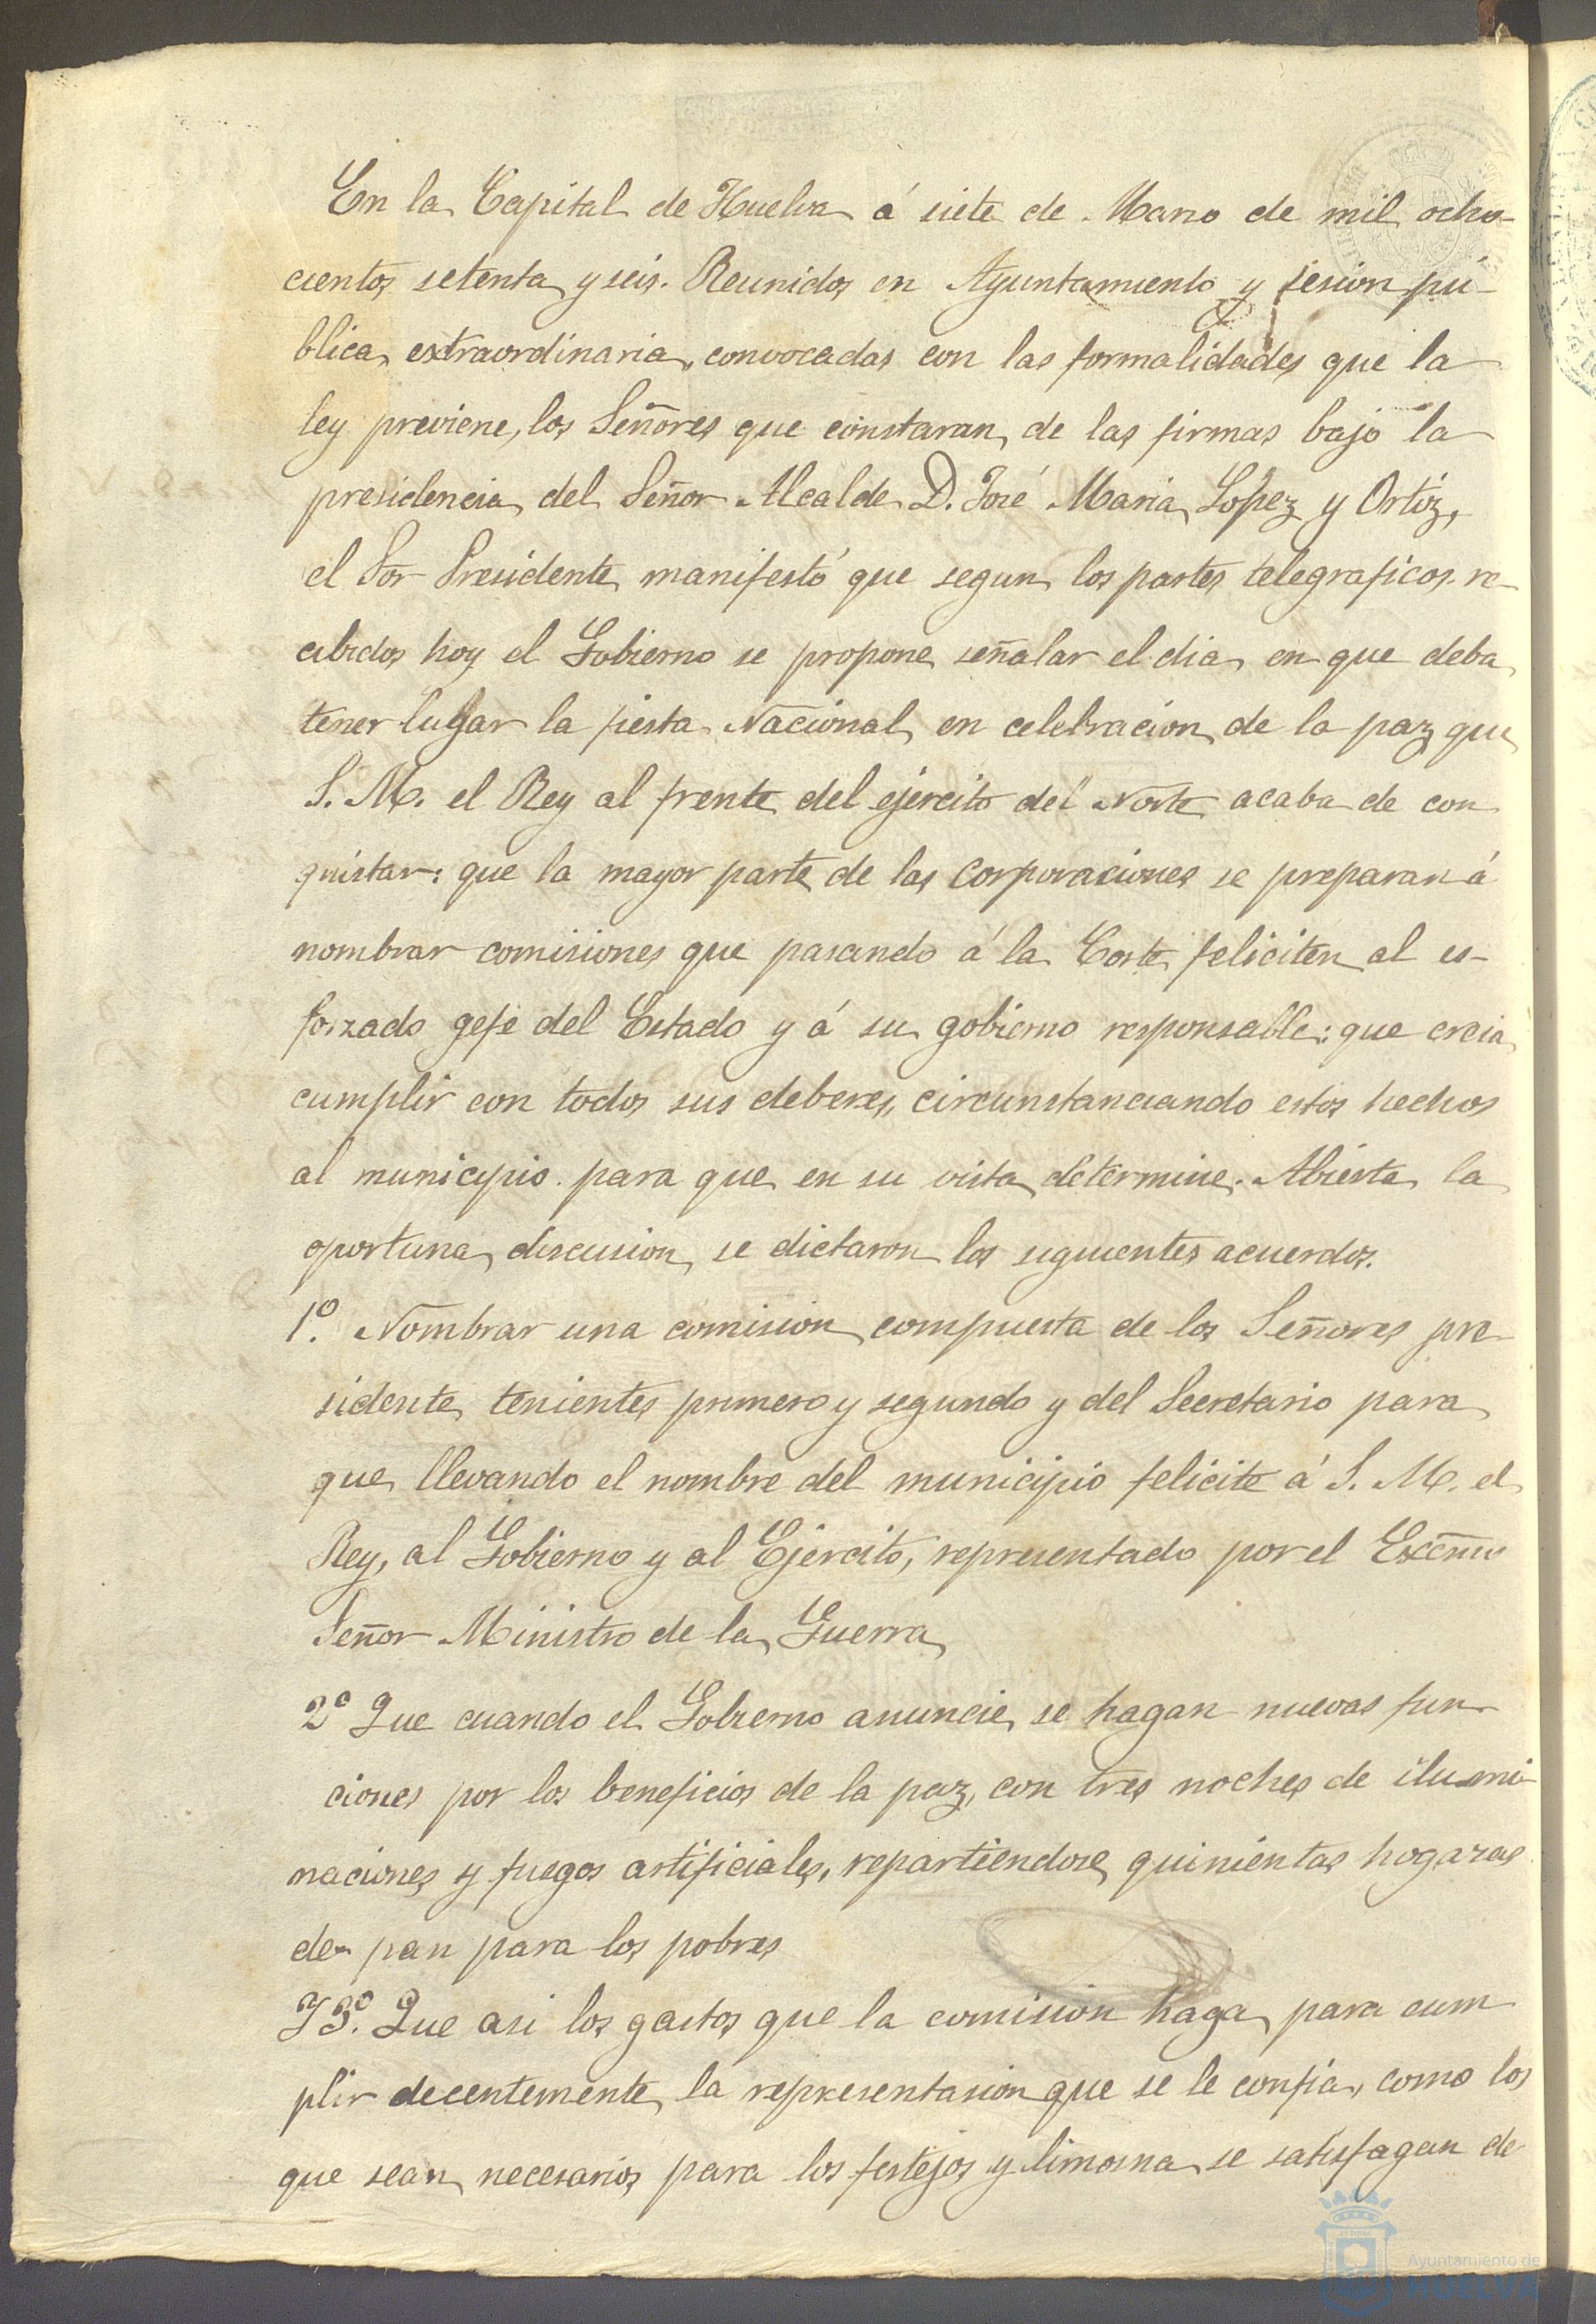 En la Capital de Huelva á siete de Marzo de mil ocho-
cientos setenta y seis. Reunidos en Ayuntamiento y sesion pú-
blica extraordinaria, convocadas con las formalidades que la
ley previene, los Señores que constaran de las firmas bajo la
presidencia del Señor Alcalde D. José Maria Lopez y Ortiz,
el Sor Presidente manifestó que segun los partes telegraficos re-
cibidos hoy el Gobierno se propone señalar el dia en que deba
tener lugar la fiesta Nacional en celebracion de la paz que
S. M. el Rey al frente del ejército del Norte acaba de con
quistar: que la mayor parte de las Corporaciones se preparan á
nombrar comisiones que pasando á la Corte feliciten al es-
forzado gefe del Estado y á su gobierno responsable: que creia
cumplir con todos sus deberes, circunstanciando estos hechos
al municipio para que en su vista determine. Abierta la
oportuna discusion se dictaron los siguientes acuerdos.
1º. Nombrar una comision compuesta de los Señores pre-
sidente, tenientes primero y segundo y del Secretario para
que llevando el nombre del municipio felicite á S. M. el
Rey, al Gobierno y al Ejército, representado por el Excmo
Señor Ministro de la Guerra
2º Que cuando el Gobierno anuncie se hagan nuevas fun-
ciones por los beneficios de la paz, con tres noches de ilumi-
naciones y fuegos artificiales, repartiendose quinientas hogazas
de pan para los pobres
Y 3º. Que asi los gastos que la comision haga para cum
plir decentemente la representasion que se le confia, como los
que sean necesarios para los festejos y limosna se satisfagan de
Ayuntamiento de
HUELVA